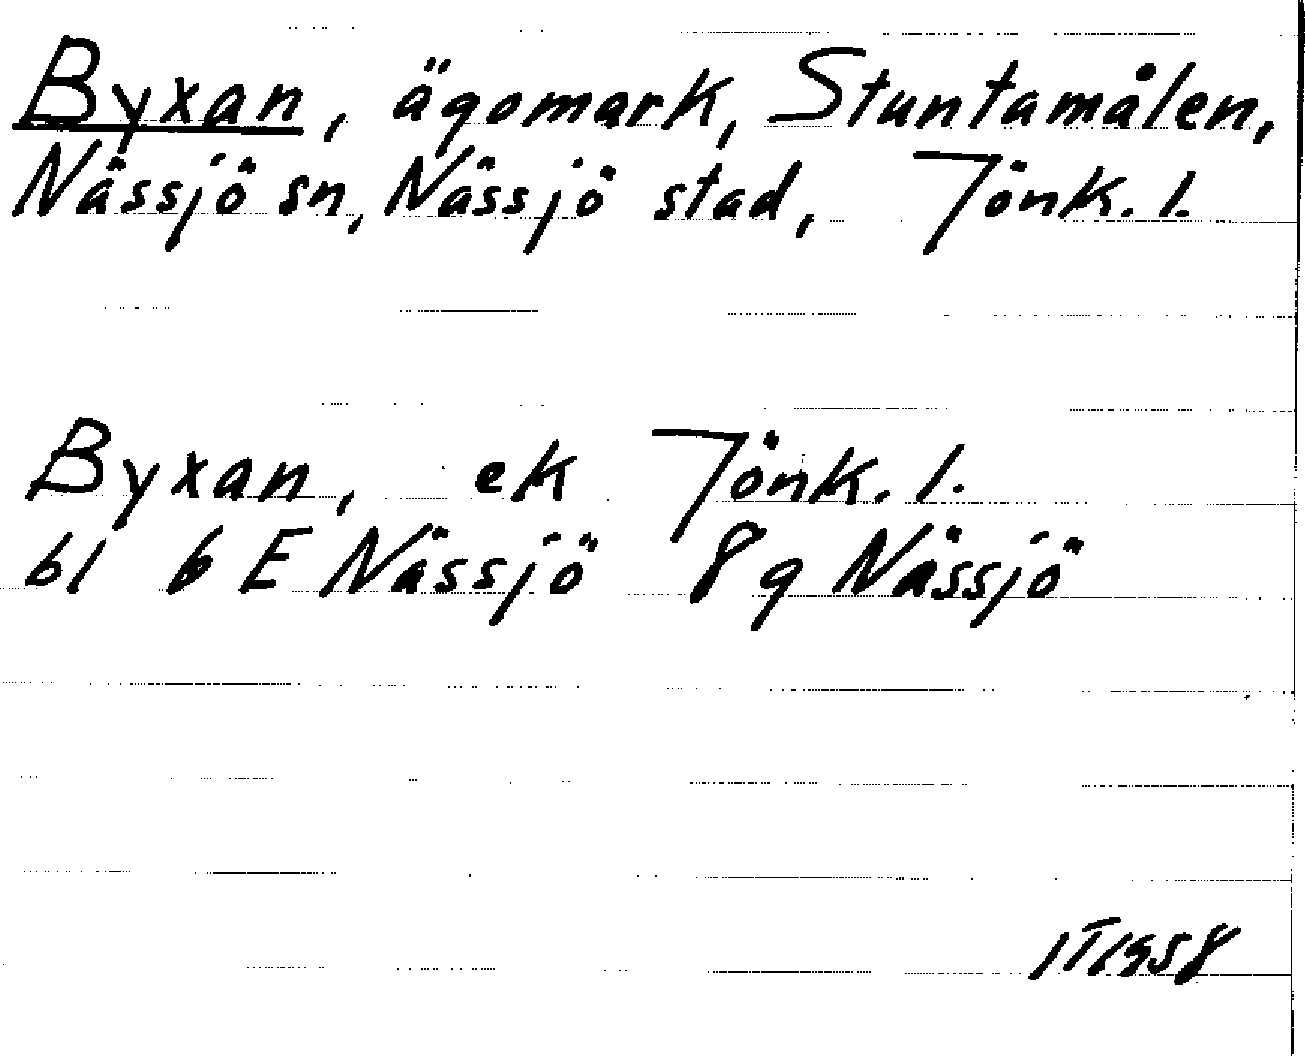 Byxan, ägomark, Stuntamålen,
Nässjö sn, Nässjö stad, Jönk. l.
Byxan, ek Jönk. l.
bl 6 E Nässjö 8 g Nässjö
1958